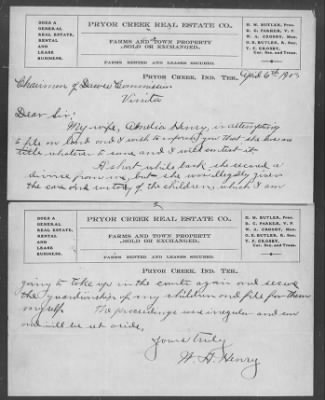 DOES A
GENERAL
REAL ESTATE,
RENTAL
AND
LEASE
BUSINESS.
PRYOR CREEK REAL ESTATE CO.
FARMS AND TOWN PROPERTY
SOLD OR EXCHANGED.
FARMS RENTED AND LEASES SECURED.
H. M. BUTLER, Pres.
R. C. PARKER, V. P.
W. A. CROSBY, Man.
G. E. BUTLER, R. Sec.
T. F. CROSBY,
Cor. Sec. and Treas.
Pryor Creek, Ind. Ter. April 6th 190
Chairman of Dawes Commission
Vinita
Dear Sir:
My wife, Amelia Henry, is attempting
to file on land and I wish to notify you that she has no
title whatever to same and I will contest it
A short while back she secured a
divorce from me, but she was illegally given
the care and custody of the children, which I am
DOES A
GENERAL
REAL ESTATE,
RENTAL
AND
LEASE
BUSINESS.
PRYOR CREEK REAL ESTATE CO.
FARMS AND TOWN PROPERTY
SOLD OR EXCHANGED.
FARMS RENTED AND LEASES SECURED.
H. M. BUTLER, Pres.
R. C. PARKER, V. P.
W. A. CROSBY, Man.
G. E. BUTLER, R. Sec.
T. F. CROSBY,
Cor. Sec. and Treas.
Pryor Creek, Ind. Ter.
going to take up in the courts again and secure
the guardianship of my children and file for them
myself. The proceedings was irregular and
and will be set aside.
Yours truly
W. H. Henry